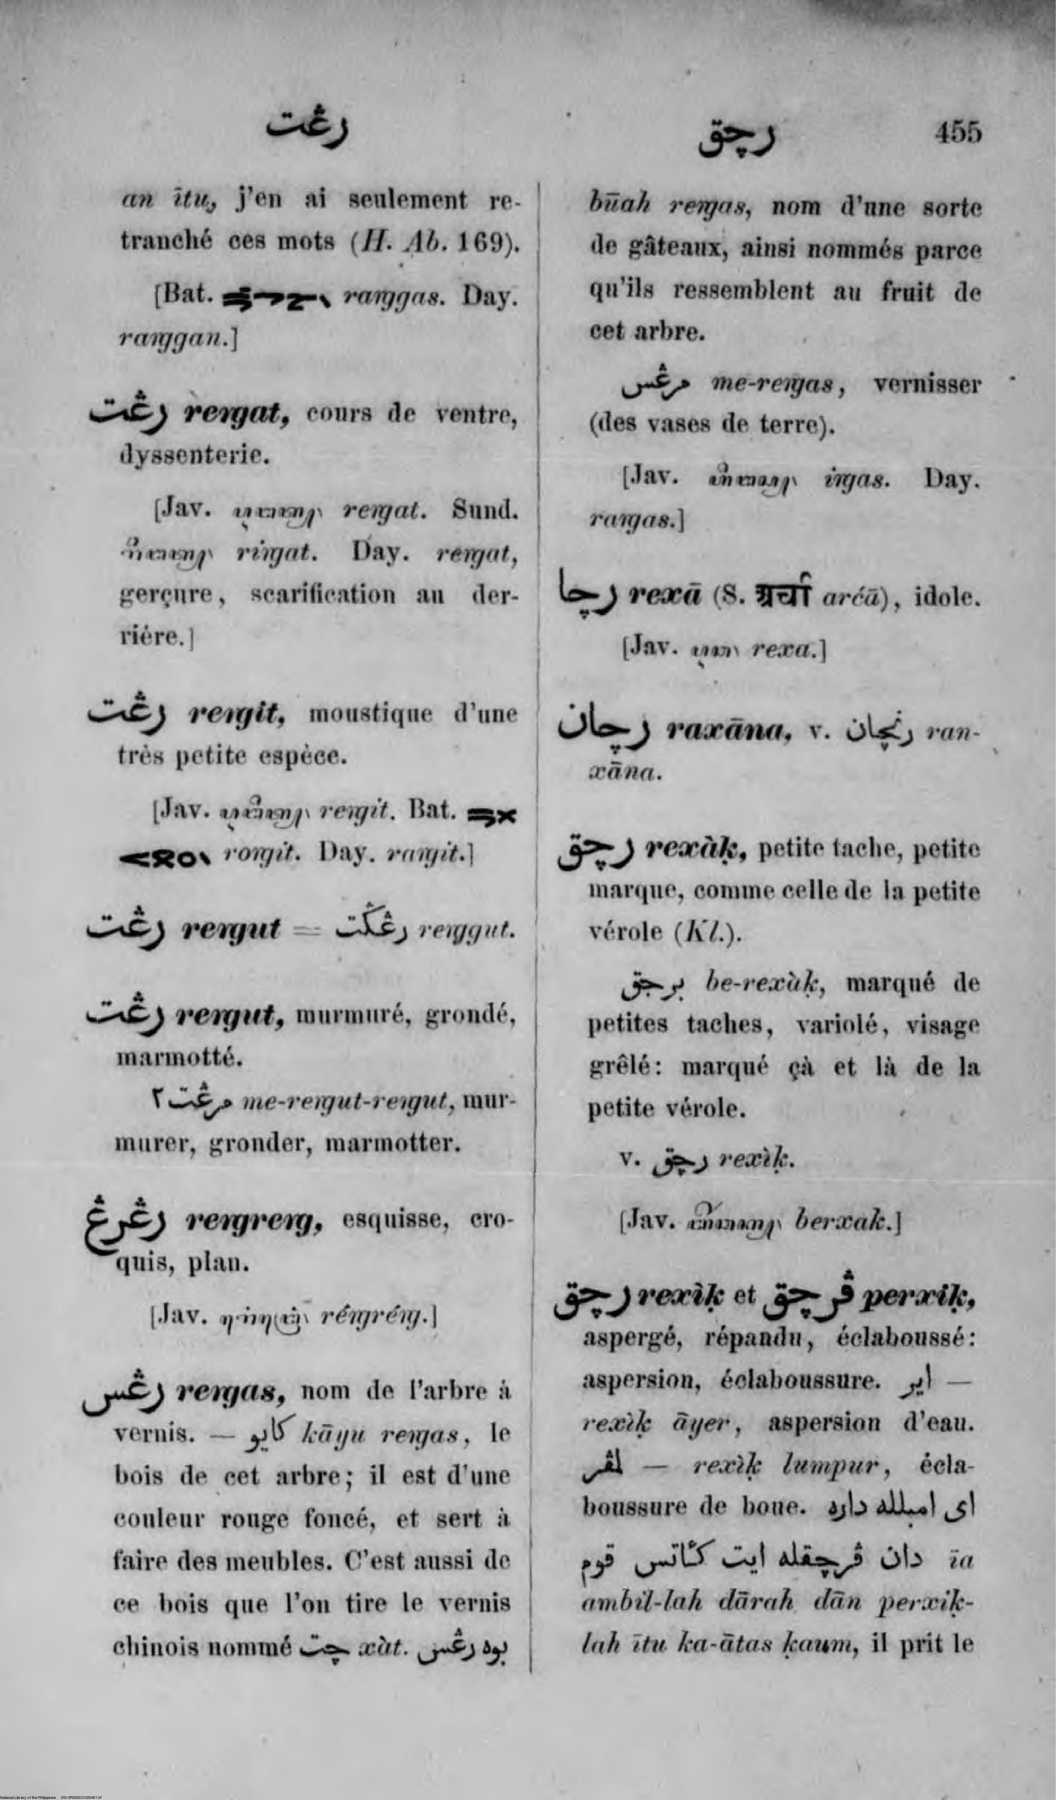 رڠت
رچق 455
an ītu, j'en ai seulement re-
tranché ces mots (H. Ab. 169).
[Bat. raŋggas. Day.
raŋggan.]
رڠت reŋgat, cours de ventre,
dyssenterie.
[Jav. reŋgat. Sund.
riŋgat. Day. reŋgat,
gerçure, scarification au der-
riére.]
رڠت reŋgit, moustique d'une
très petite espèce.
[Jav. reŋgit. Bat.
roŋgit. Day. raŋgit.]
رڠت reŋgut = رڠݢت reŋggut.
رڠت reŋgut, murmuré, grondé,
marmotté.
مرڠت٢ me-reŋgut-reŋgut, mur-
murer, gronder, marmotter.
رڠرڠ reŋgreŋg, esquisse, cro-
quis, plan.
[Jav. réŋgréŋg.]
رڠس reŋgas, nom de l'arbre à
vernis. — كايو kāyu reŋgas, le
bois de cet arbre; il est d'une
couleur rouge foncé, et sert à
faire des meubles. C'est aussi de
ce bois que l'on tire le vernis
chinois nommé چت xàt. بوه رڠس
būah reŋgas, nom d'une sorte
de gâteaux, ainsi nommés parce
qu'ils ressemblent au fruit de
cet arbre.
مرڠس me-reŋgas, vernisser
(des vases de terre).
[Jav. iŋgas. Day.
raŋgas.]
رچا rexā (S. अर्चा arćā), idole.
[Jav. rexa.]
رچان raxāna, v. رنچان ran-
xāna.
رچق rexàḳ, petite tache, petite
marque, comme celle de la petite
vérole (Kl.).
برچق be-rexàḳ, marqué de
petites taches, variolé, visage
grêlé: marqué çà et là de la
petite vérole.
v. رچق rexìḳ.
[Jav. berxak.]
رچق rexìḳ et ڤرچق perxiḳ,
aspergé, répandu, éclaboussé:
aspersion, éclaboussure. اير —
rexìḳ āyer, aspersion d'eau.
لمڤر — rexìḳ lumpur, écla-
boussure de boue. اي امبلله داره
دان ڤرچقله ايت كأتس قوم īa
ambil-lah dārah dān perxiḳ-
lah ītu ka-ātas ḳaum, il prit le